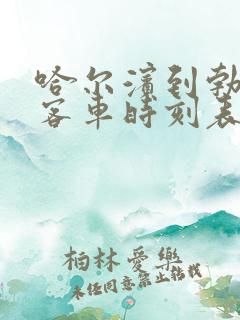 哈尔滨到勃
客车时刻表
柏林爱乐
未经同意禁止转载